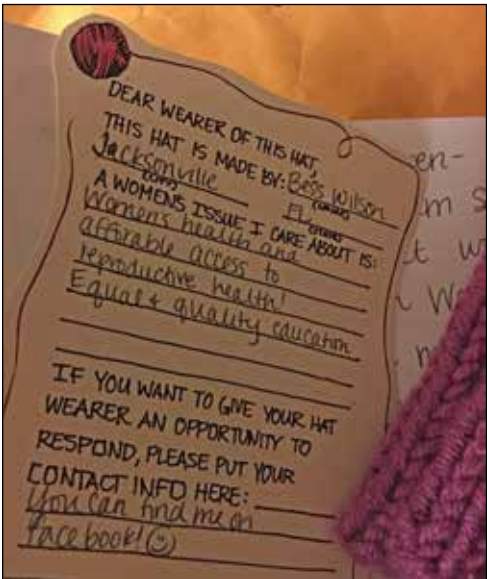 DEAR WEARER OF THIS HAT,
THIS HAT IS MADE BY: Bess Wilson
Jacksonville FL
A WOMENS ISSUE I CARE ABOUT IS:
Women's health and
afforable access to
reproductive health!
Equal + quality education
IF YOU WANT TO GIVE YOUR HAT
WEARER AN OPPORTUNITY TO
RESPOND, PLEASE PUT YOUR
CONTACT INFO HERE:
You can find me on
facebook!